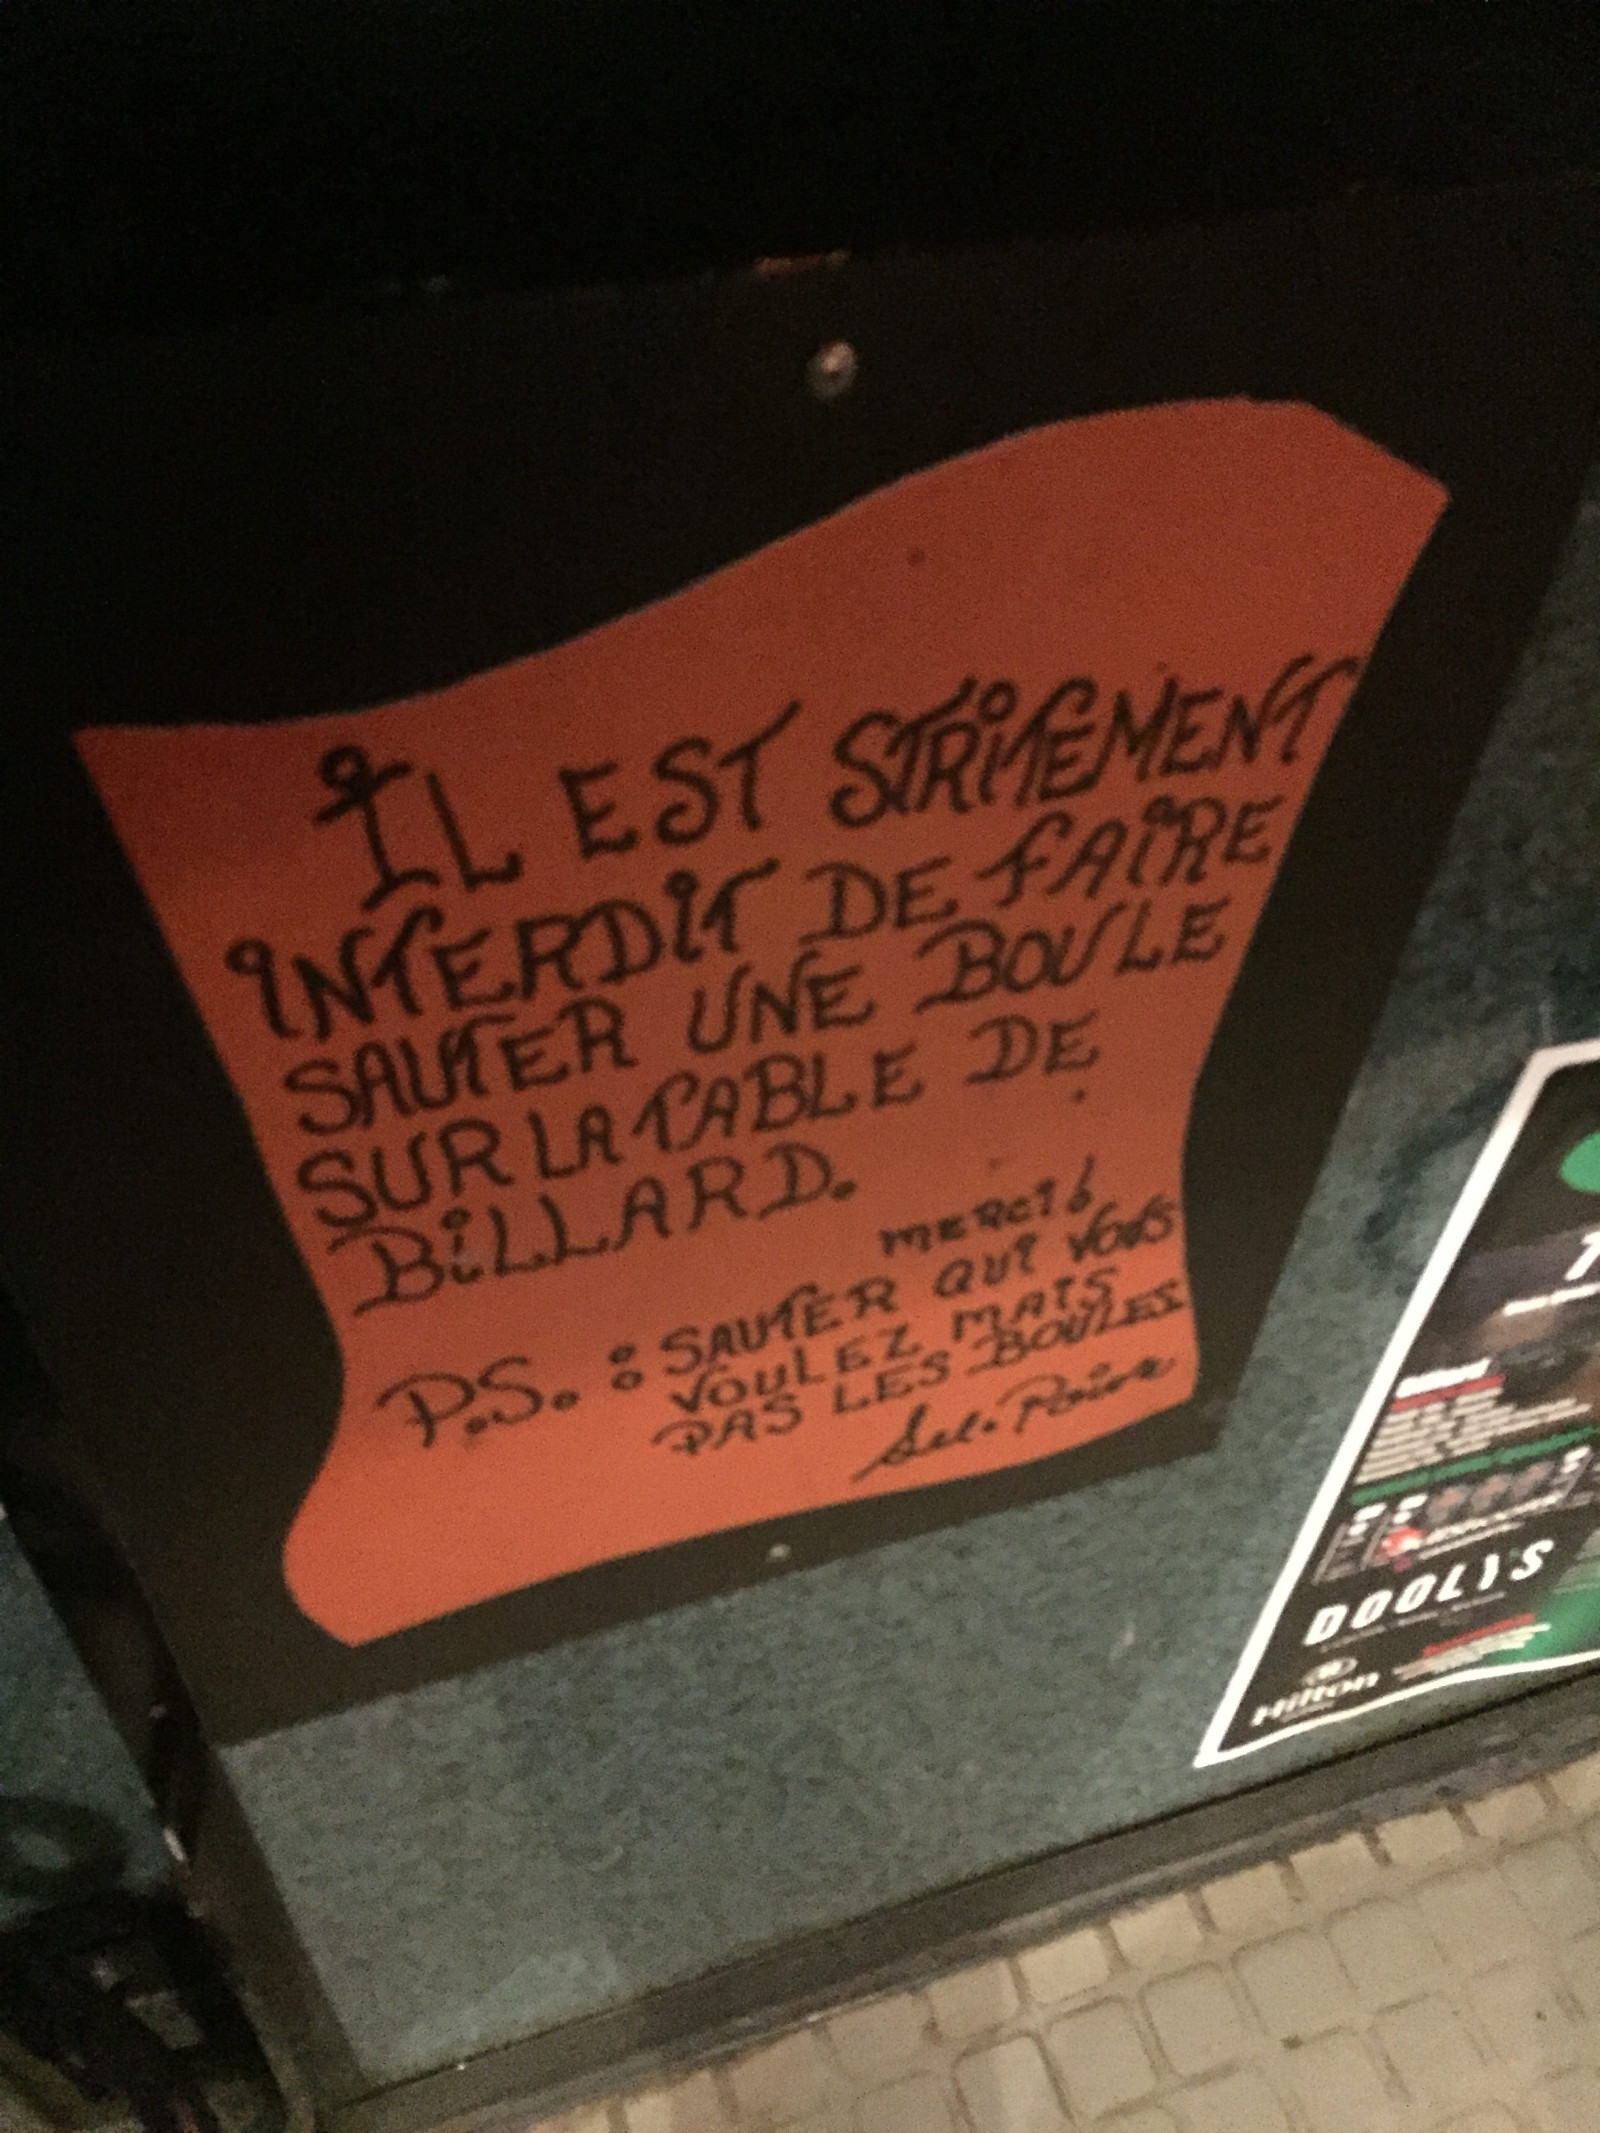 IL EST STRITEMENT
INTERDIT DE FAIRE
SAUTER UNE BOULE
SUR LA TABLE DE
BILLARD.
MERCI
P.S. : SAUTER QUI VOUS
VOULEZ MAIS
PAS LES BOULES
DOOLYS
Hilton